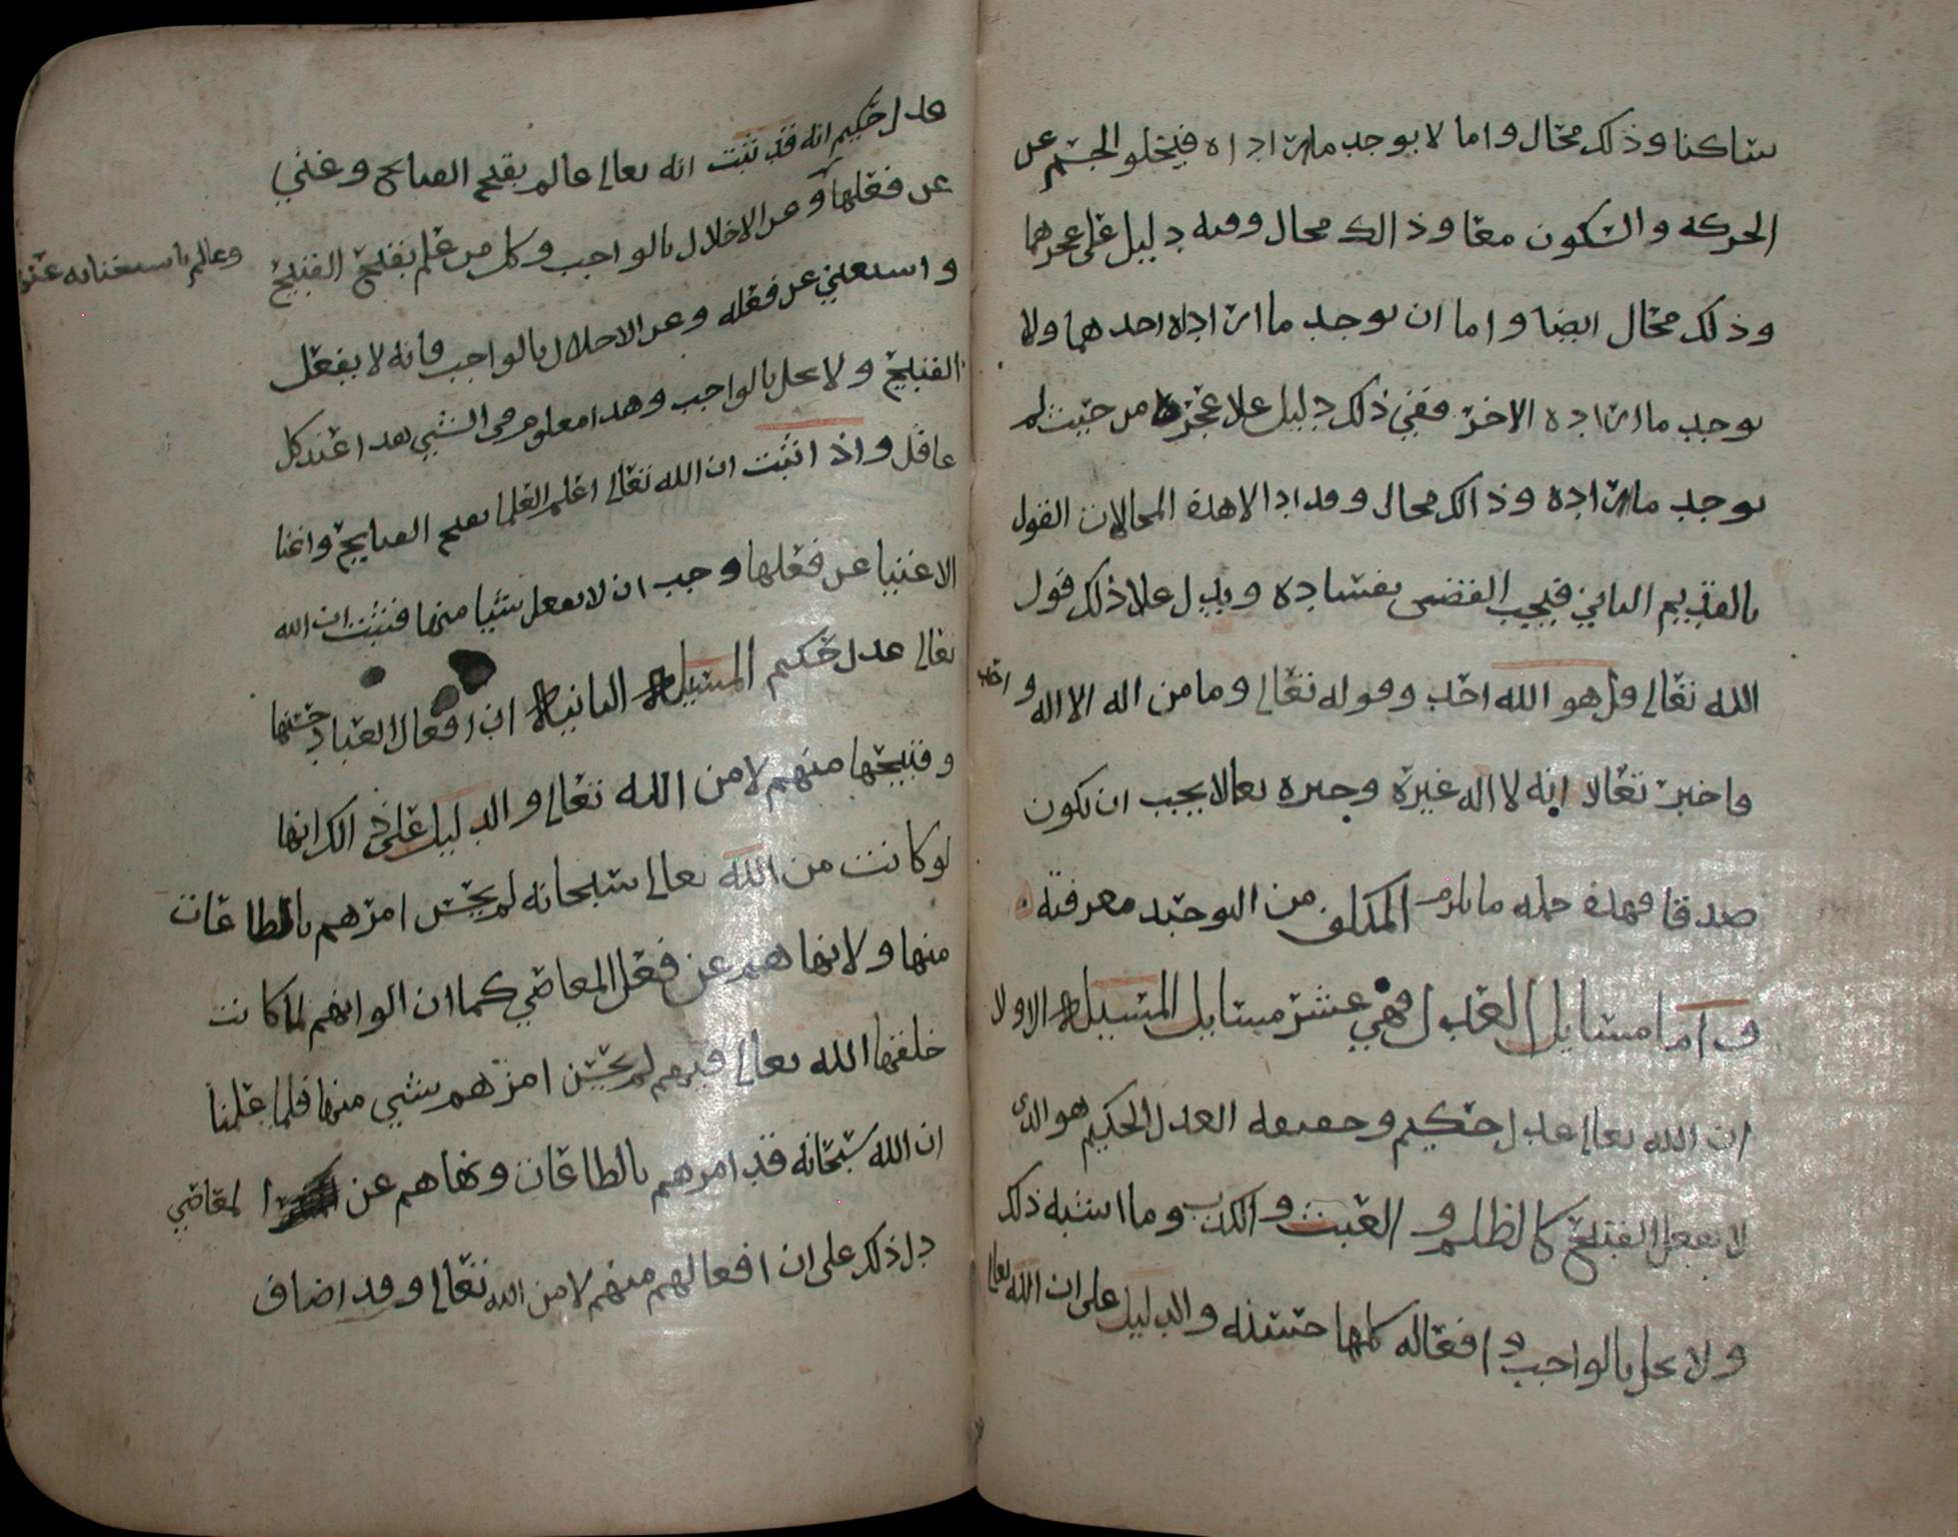 ساكنا وذلك محال واما لا يوجد ما اراداه فيخلو الجسم عن
الحركه والسكون معا وذالك محال وفيه دليل على عجزهما
وذلك محال ايضا واما ان يوجد ما اراداه احدهما ولا
يوجد ما اراده الاخر ففي ذلك دليل علا عجزه من حيث لم
يوجد ما اراده وذالك محال وقد ادا الا هذه المحالات القول
بالقديم الثاني فيجب القضى بفساده ويدل علا ذلك قول
الله تعالى قل هو الله احد وقوله تعالى وما من اله الا اله واحد
فاخبر تعالا انه لا اله غيره وخبره تعالا يجب ان يكون
صدقا فهذه جمله ما يلزم المكلف من التوحيد معرفته
واما مسايل العدل فهي عشر مسايل المسيله الاولا
ان الله تعالى عدل حكيم وحقيقه العدل الحكيم هو الذي
لا يفعل القبيح كالظلم والعبث والكذب وما اشبه ذلك
ولا يخل بالواجب وافعاله كلها حسنه والدليل على ان الله تعالى
عدل حكيم انه قد ثبت انه تعالى عالم بقبح القبايح وغني
عن فعلها وعن الاخلال بالواجب وكل من علم بقبح القبيح
وعالم باستغنايه عنها
واستغنى عن فعله وعن الاخلال بالواجب فانه لا يفعل
القبيح ولا يخل بالواجب وهذا معلوم في الشي هدا عند كل
عاقل واذ اثبت ان الله تعالى اعلم العلما بقبح القبايح واغنا
الاغنيا عن فعلها وجب ان لا يفعل شيا منها فثبت ان الله
تعالى عدل حكيم المسيله الثانيه ان افعال العباد حسنها
وقبيحها منهم لا من الله تعالى والدليل على ذالك انها
لو كانت من الله تعالى سبحانه لم يحسن امرهم بالطاعات
منها ولا نهاهم عن فعل المعاصي كما ان الوانهم لما كانت
خلقها الله تعالى فيهم لم يحسن امرهم بشي منها فلما علمنا
ان الله سبحانه قد امرهم بالطاعات ونهاهم عن المعاصي
دل ذلك على ان افعالهم منهم لا من الله تعالى وقد اضاف